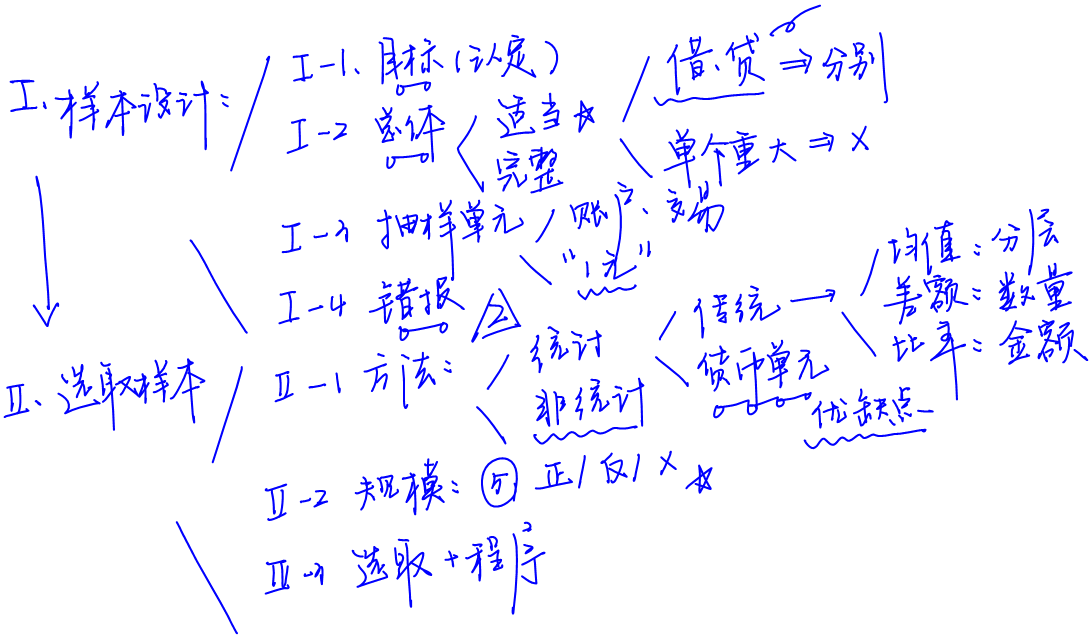 I、样本设计：
I-1、目标（认定）
I-2 总体
适当☆
完整
借、贷 ⇒ 分别
单个重大 ⇒ ×
I-3 抽样单元
账户、交易
“1元”
I-4 错报 △2
II、选取样本
II-1 方法：
统计
非统计
传统 →
均值：分层
差额：数量
比率：金额
货币单元
优缺点
II-2 规模：⑤ 正/反/× ☆
II-3 选取+程序